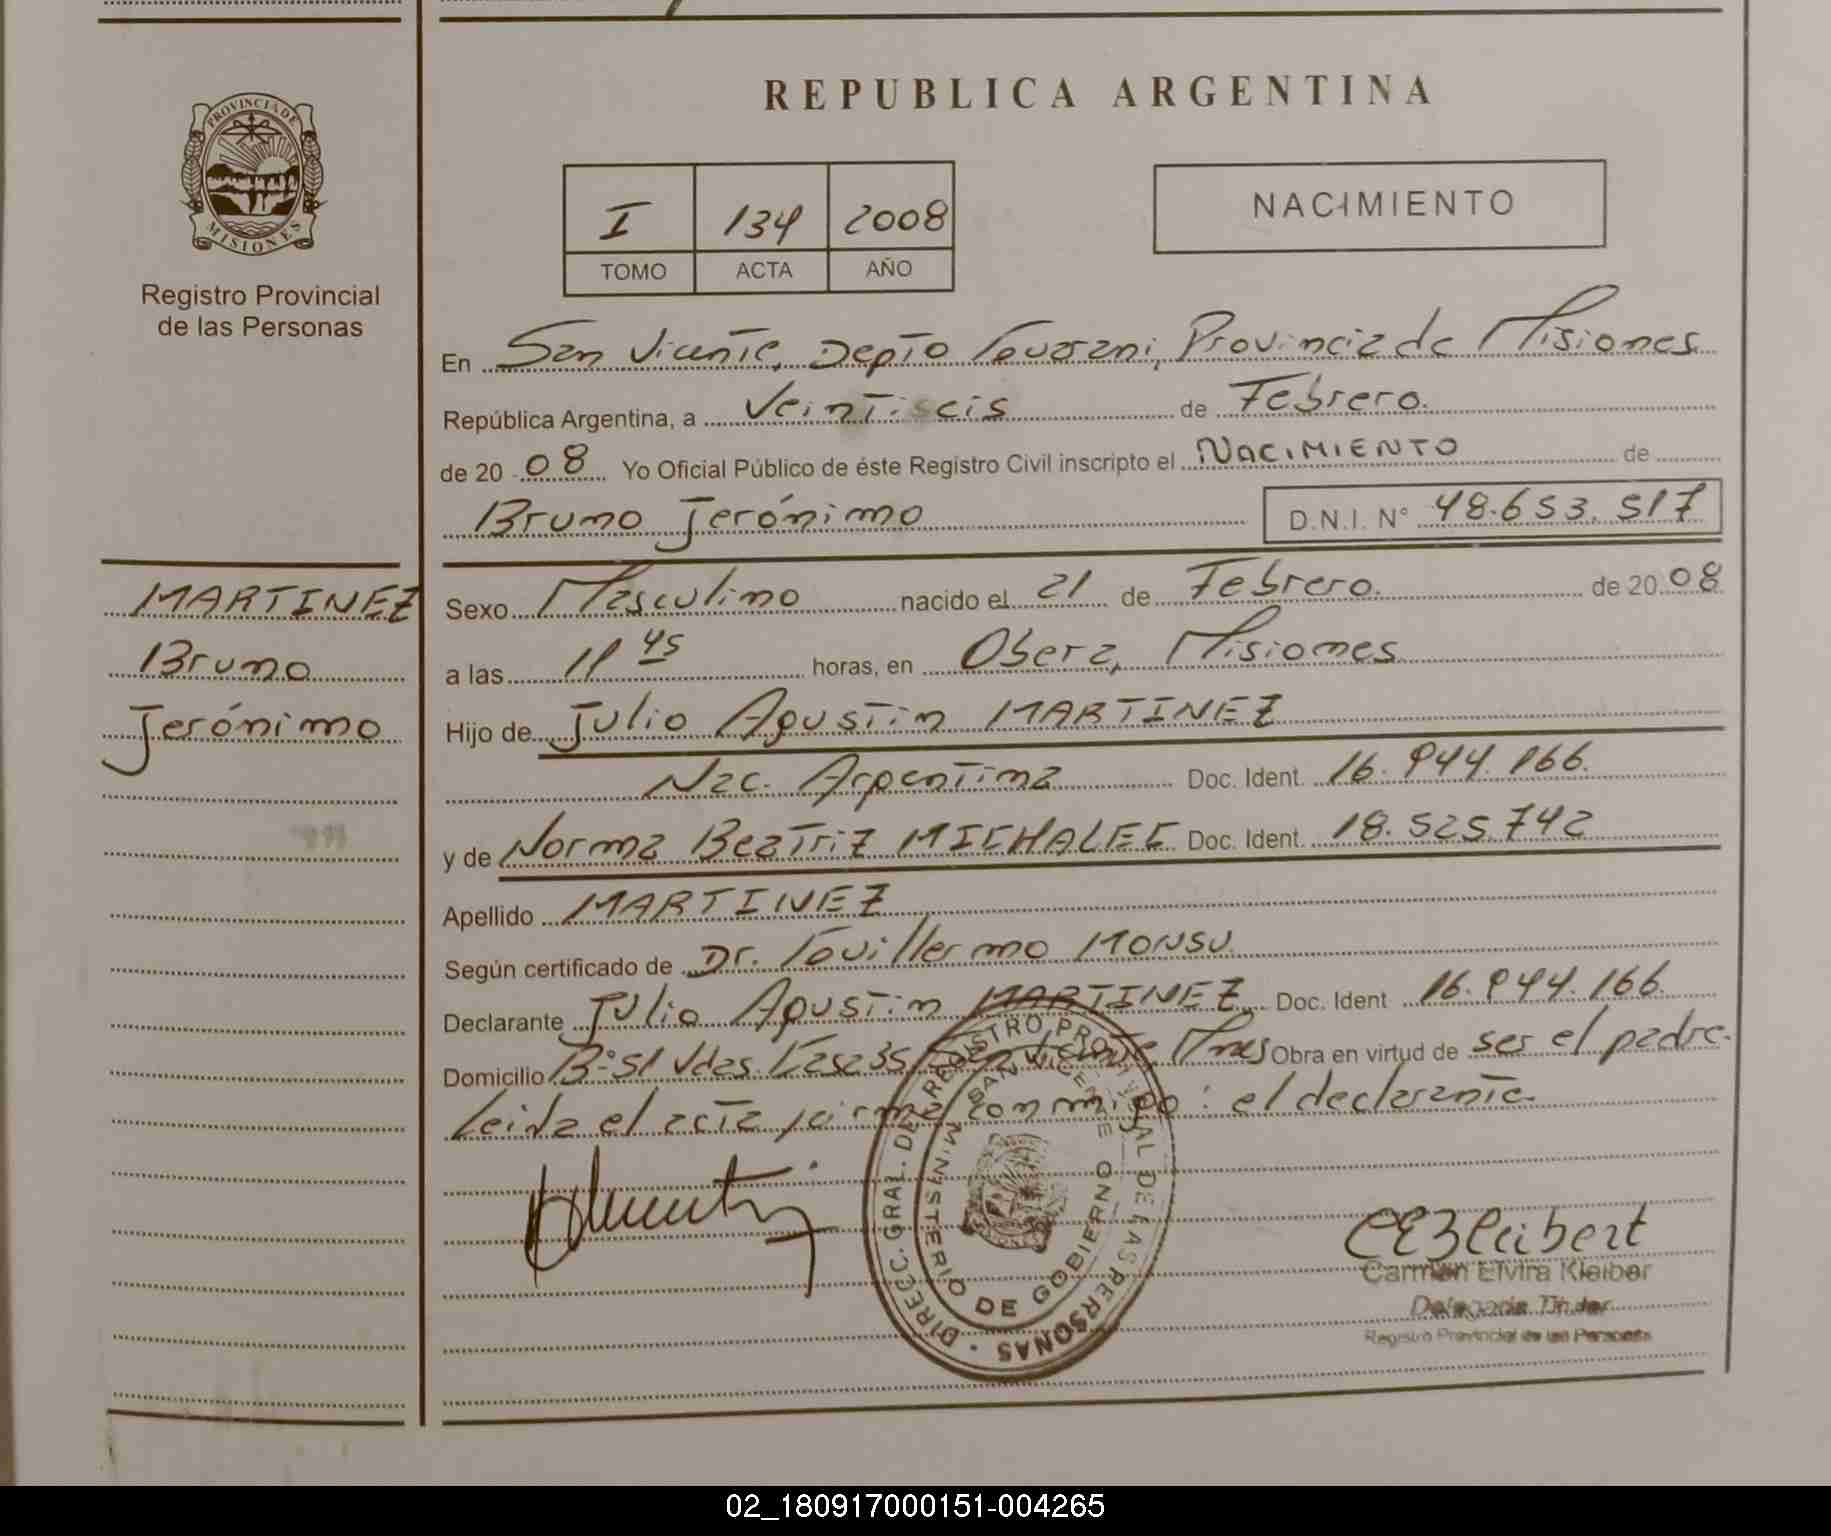 PROVINCIA DE
MISIONES
Registro Provincial
de las Personas
REPUBLICA ARGENTINA
I 134 2008
TOMO ACTA AÑO
NACIMIENTO
En San Vicente, Depto Guarani, Provincia de Misiones
República Argentina, a Veintiseis de Febrero.
de 20 08 Yo Oficial Público de éste Registro Civil inscripto el NACIMIENTO de
Bruno Jerónimo D.N.I. N° 48.653.517
MARTINEZ
Bruno
Jerónimo
Sexo Masculino nacido el 21 de Febrero. de 20 08
a las 11 45 horas, en Obera, Misiones
Hijo de Julio Agustin MARTINEZ
Nac. Argentina Doc. Ident. 16.944.166.
y de Norma Beatriz MICHALEC Doc. Ident. 18.525.742
Apellido MARTINEZ
Según certificado de Dr. Guillermo MONSU
Declarante Julio Agustin MARTINEZ Doc. Ident 16.944.166.
Domicilio B° 51 Vdas. Casa 35 San Vicente Mnes Obra en virtud de ser el padre.
Leida el acta firma conmigo: el declarante.
DIRECC. GRAL. DE REGISTRO PROVINCIAL DE LAS PERSONAS
SAN VICENTE
MINISTERIO DE GOBIERNO
Carmen Elvira Kleiber
Delegada Titular
Registro Provincial de las Personas
02_180917000151-004265